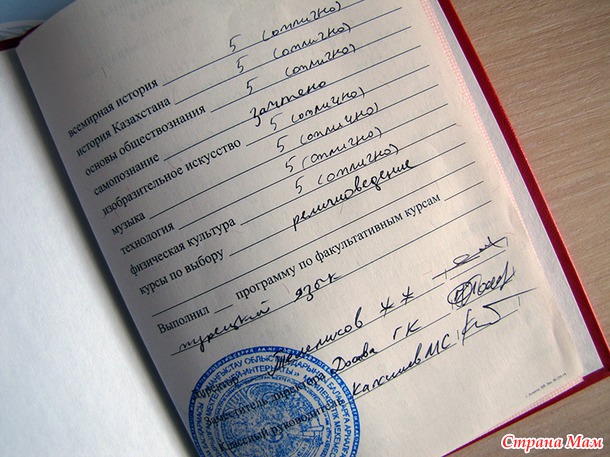 всемирная история 5 (отлично)
история Казахстана 5 (отлично)
основы обществознания 5 (отлично)
самопознание зачтено
изобразительное искусство 5 (отлично)
музыка 5 (отлично)
технология 5 (отлично)
физическая культура 5 (отлично)
курсы по выбору религиоведение
Выполнил _ программу по факультативным курсам
турецкий язык
Директор
Заместитель директора Досава ГК
Классный руководитель МС
Страна Мам